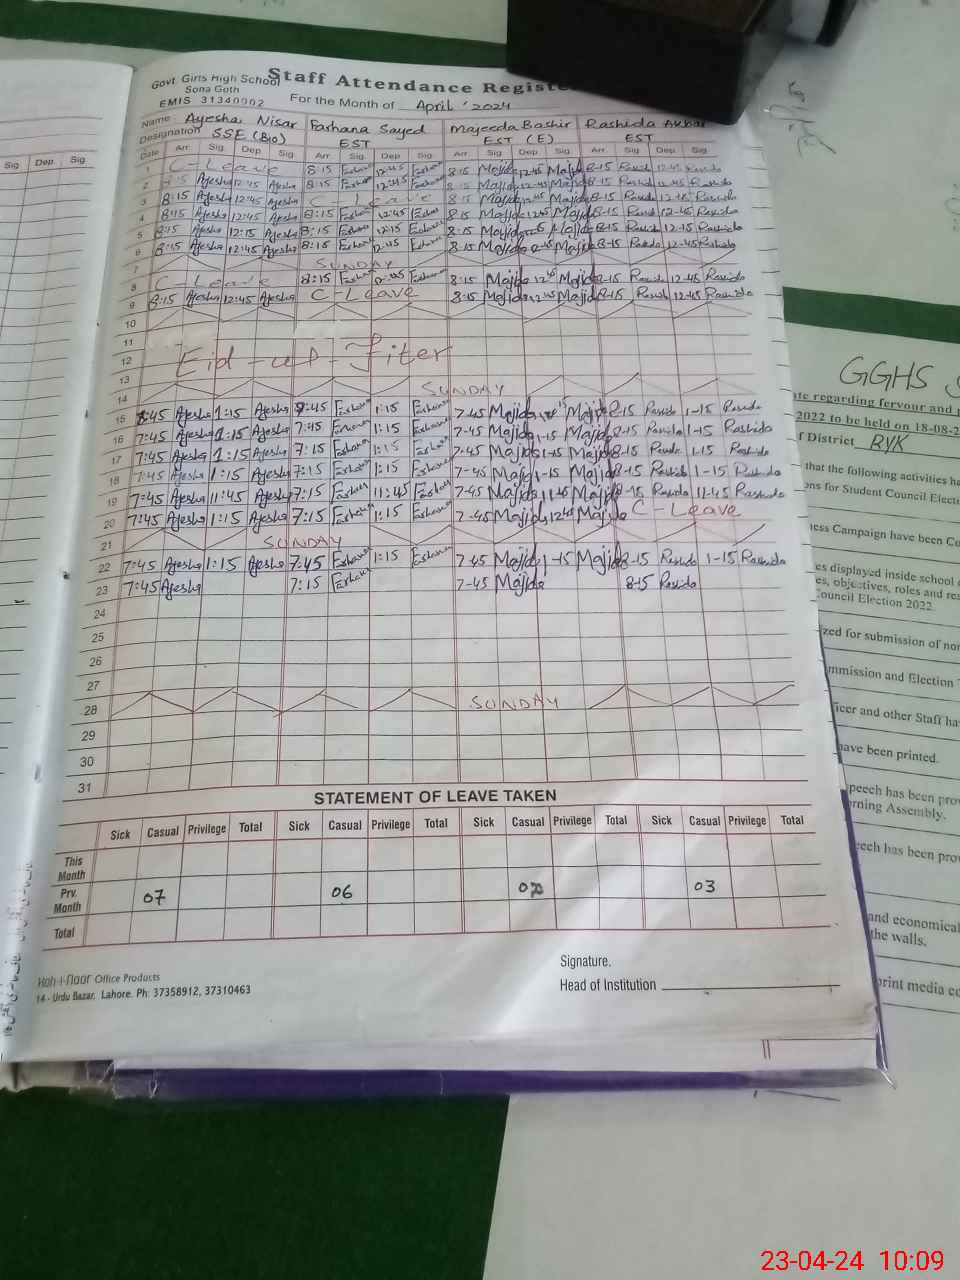 Govt. Girls High School
Sona Goth
EMIS 31340002
Staff Attendance Registe
For the Month of April '2024
Name Ayesha Nisar Farhana Sayed Majeeda Bashir Rashida Akbar
Designation SSE (Bio) EST EST (E) EST
Date Arr. Sig. Dep. Sig. Arr. Sig. Dep. Sig. Arr. Sig. Dep. Sig. Arr. Sig. Dep. Sig.
1 C-Leave 8:15 Farhana 12:45 Farhana 8:15 Majida 12:45 Majida 8-15 Rashid 12-45 Rashida
2 8:15 Ayesha 12:45 Ayesha 8:15 Farhana 12:45 Farhana 8:15 Majida 12:45 Majida 8-15 Rashid 12-45 Rashida
3 8:15 Ayesha 12:45 Ayesha C-Leave 8:15 Majida 12:45 Majida 8-15 Rashid 12-45 Rashida
4 8:15 Ayesha 12:45 Ayesha 8:15 Farhana 12:45 Farhana 8:15 Majida 12:45 Majida 8-15 Rashid 12-45 Rashida
5 8:15 Ayesha 12:15 Ayesha 8:15 Farhana 12:15 Farhana 8:15 Majida Majida 8-15 Rashid 12-15 Rashida
6 8:15 Ayesha 12:45 Ayesha 8:15 Farhana 12:45 Farhana 8:15 Majida 12-45 Majida 8-15 Rashida 12-45 Rashida
7 SUNDAY
8 C-Leave 8:15 Farhana 12:45 Farhana 8:15 Majida 12:45 Majida 8-15 Rashid 12-45 Rashida
9 8:15 Ayesha 12:45 Ayesha C-Leave 8:15 Majida 12:45 Majida 8-15 Rashid 12-45 Rashida
10
11
12 Eid-ul-Fiter
13
14 SUNDAY
15 8:45 Ayesha 1:15 Ayesha 7:45 Farhana 1:15 Farhana 7-45 Majida Majida 8-15 Rashid 1-15 Rashida
16 7:45 Ayesha 1:15 Ayesha 7:45 Farhana 1:15 Farhana 7-45 Majida 1-15 Majida 8-15 Rashida 1-15 Rashida
17 7:45 Ayesha 1:15 Ayesha 7:15 Farhana 1:15 Farhana 7-45 Majida 1-15 Majida 8-15 Rashida 1-15 Rashida
18 7:45 Ayesha 1:15 Ayesha 7:15 Farhana 1:15 Farhana 7-45 Majida 1-15 Majida 8-15 Rashid 1-15 Rashida
19 7:45 Ayesha 11:45 Ayesha 7:15 Farhana 11:45 Farhana 7-45 Majida 11-45 Majida 8-15 Rashida 11-45 Rashida
20 7:45 Ayesha 1:15 Ayesha 7:15 Farhana 1:15 Farhana 7-45 Majida 12:45 Majida C-Leave
21 SUNDAY
22 7:45 Ayesha 1:15 Ayesha 7:45 Farhana 1:15 Farhana 7-45 Majida 1-15 Majida 8-15 Rashida 1-15 Rashida
23 7:45 Ayesha 7:15 Farhana 7-45 Majida 8-15 Rashida
24
25
26
27
28 SUNDAY
29
30
31
STATEMENT OF LEAVE TAKEN
Sick Casual Privilege Total Sick Casual Privilege Total Sick Casual Privilege Total Sick Casual Privilege Total
This Month
Prv. Month 07 06 03
Total
Signature.
Head of Institution
Koh-i-noor Office Products
14 - Urdu Bazar, Lahore. Ph: 37358912, 37310463
Sig Dep. Sig
GGHS
te regarding fervour and
2022 to be held on 18-08-2
f District RYK
that the following activities ha
ons for Student Council Elect
ness Campaign have been Co
es displayed inside school
es, objectives, roles and res
Council Election 2022.
zed for submission of no
mmission and Election
ficer and other Staff ha
have been printed.
peech has been pro
rning Assembly.
eech has been prov
and economical
the walls.
print media co
23-04-24 10:09